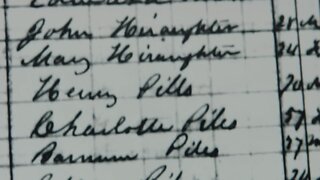 John Hiraughter 28 M
Mary Hiraughter 24
Henry Pills 70
Charlotte Piles 57
Barnum Piles 27